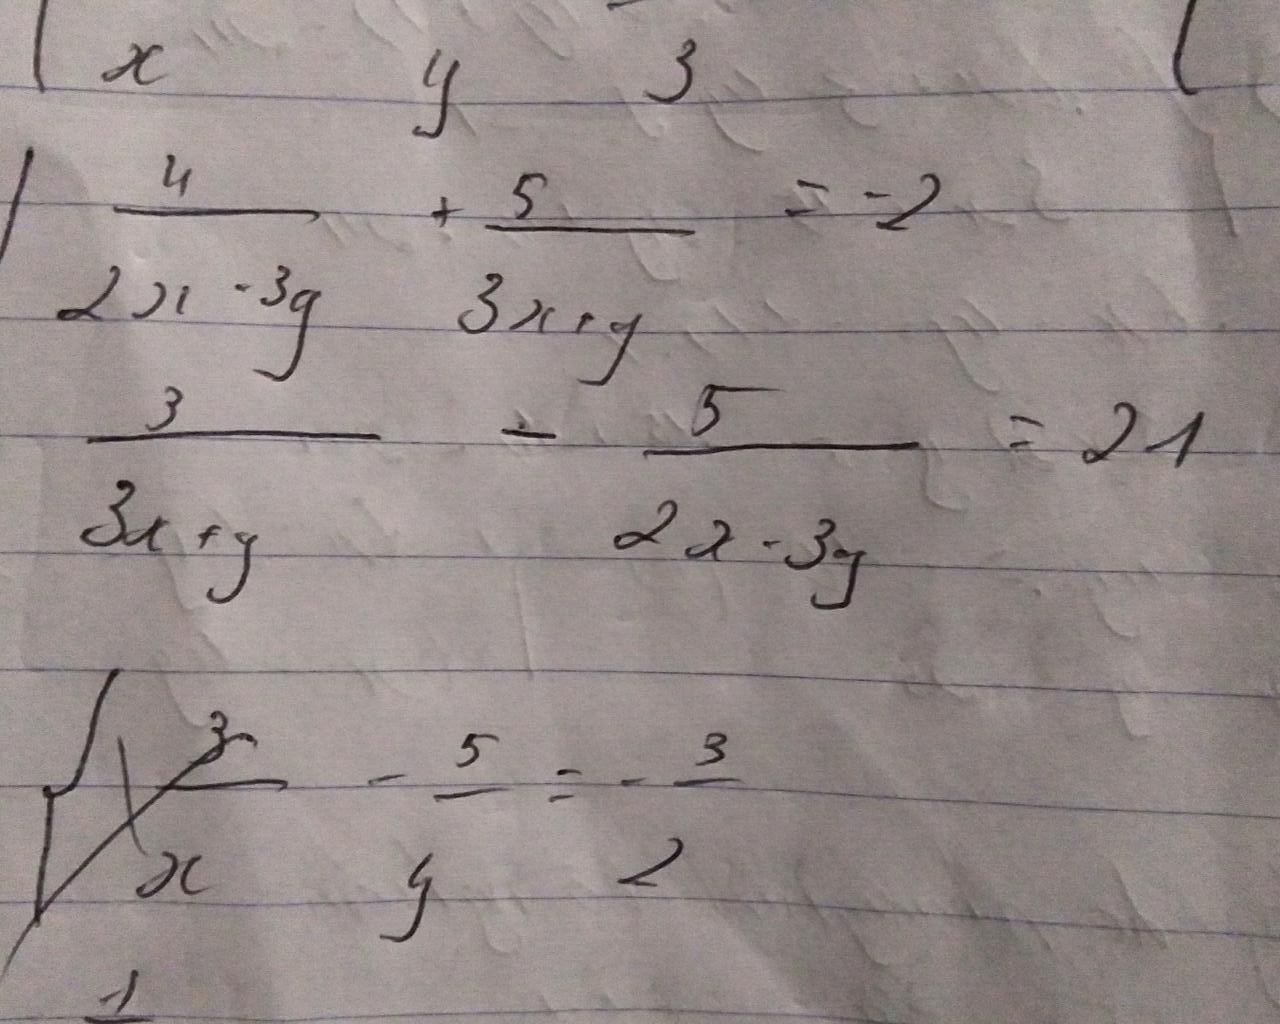 x y 3
4/(2x - 3y) + 5/(3x + y) = -2
3/(3x + y) - 5/(2x - 3y) = 21
3/x - 5/y = -3/2
1